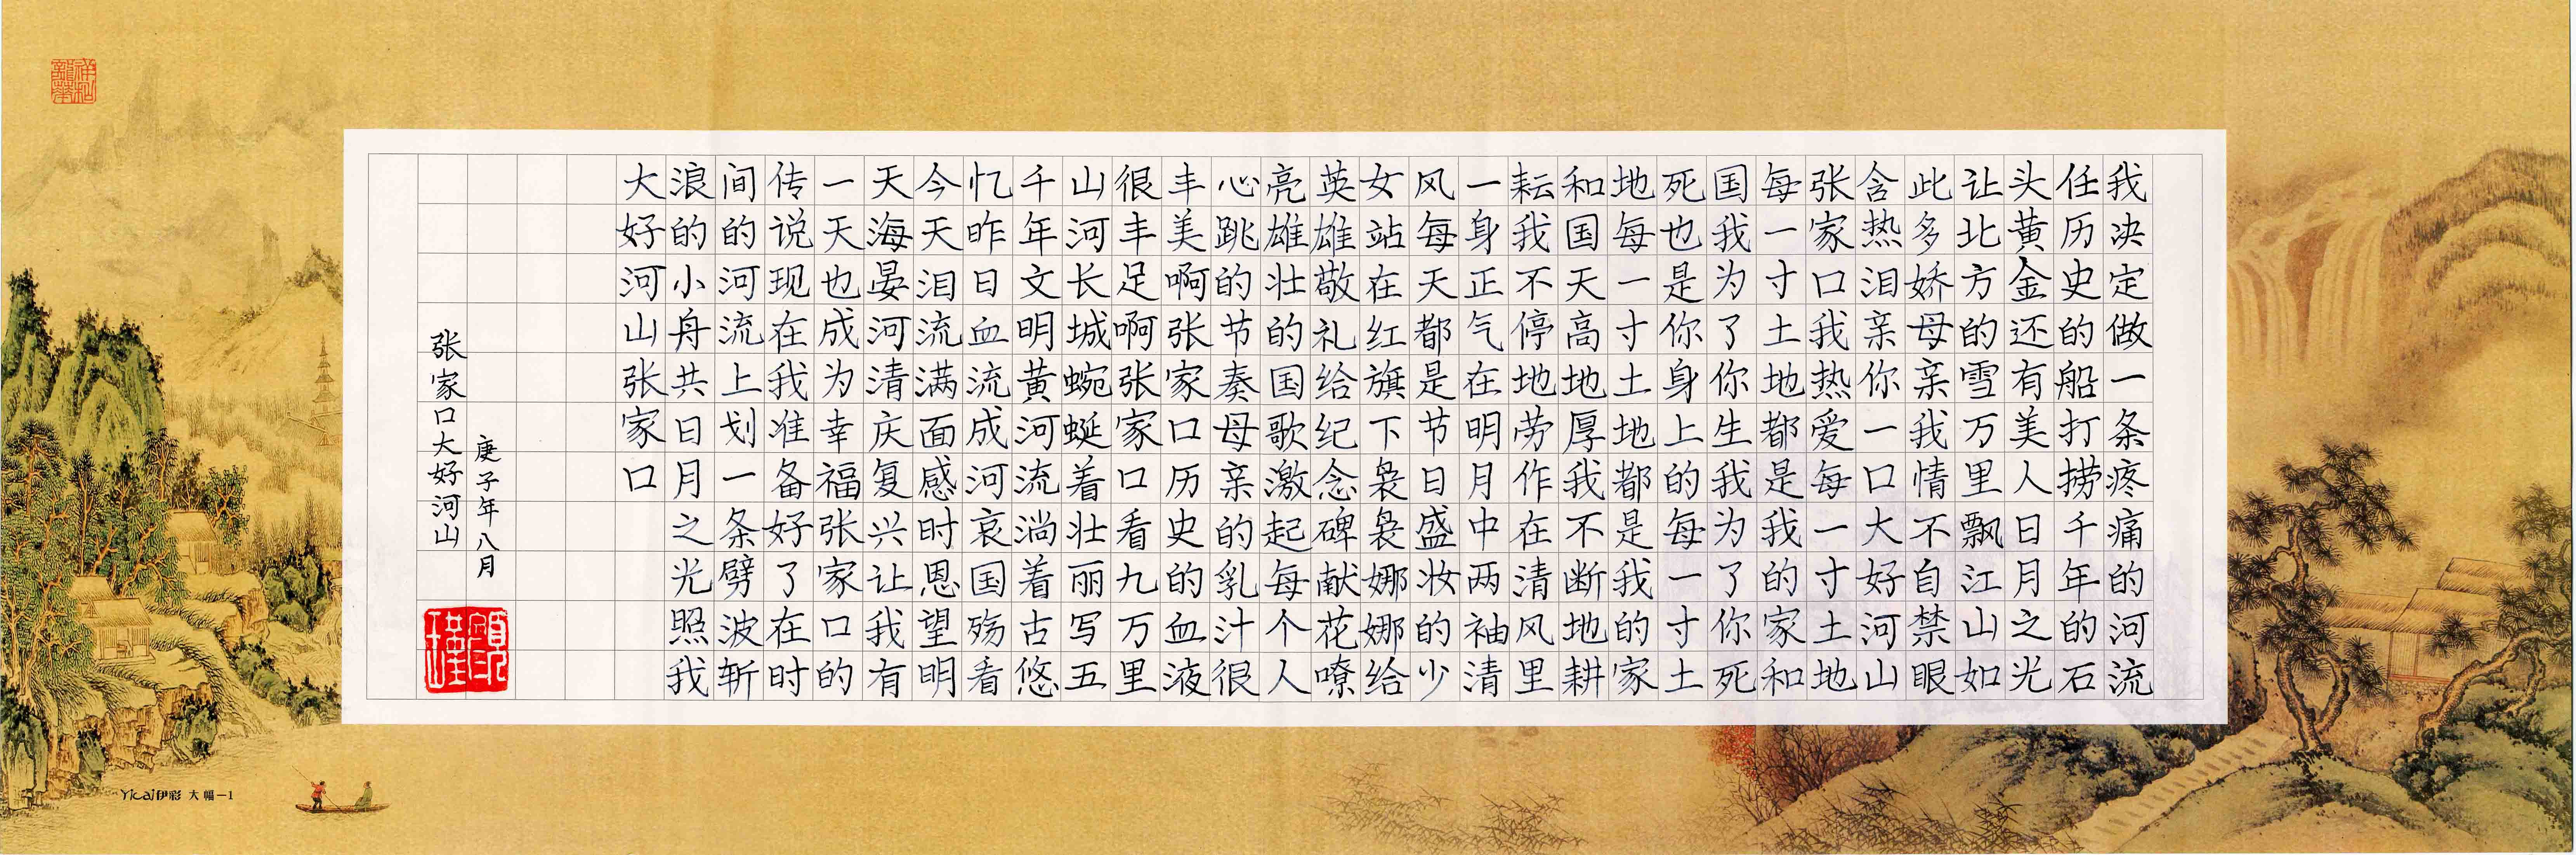 我决定做一条疼痛的河流
任历史的船打捞千年的石
头黄金还有美人日月之光
让北方的雪万里飘江山如
此多娇母亲我情不自禁眼
含热泪亲你一口大好河山
张家口我热爱每一寸土地
每一寸土地都是我的家和
国我为了你生我为了你死
死也是你身上的每一寸土
地每一寸土地都是我的家
和国天高地厚我不断地耕
耘我不停地劳作在清风里
一身正气在明月中两袖清
风每天都是节日盛妆的少
女站在红旗下袅袅娜娜给
英雄敬礼给纪念碑献花嘹
亮雄壮的国歌激起每个人
心跳的节奏母亲的乳汁很
丰美啊张家口历史的血液
很丰足啊张家口看九万里
山河长城蜿蜒着壮丽写五
千年文明黄河流淌着古悠
忆昨日血流成河哀国殇看
今天泪流满面感时恩望明
天海晏河清庆复兴让我有
一天也成为幸福张家口的
传说现在我准备好了在时
间的河流上划一条劈波斩
浪的小舟共日月之光照我
大好河山张家口
庚子年八月
张家口大好河山
Yicai伊彩 大幅一1